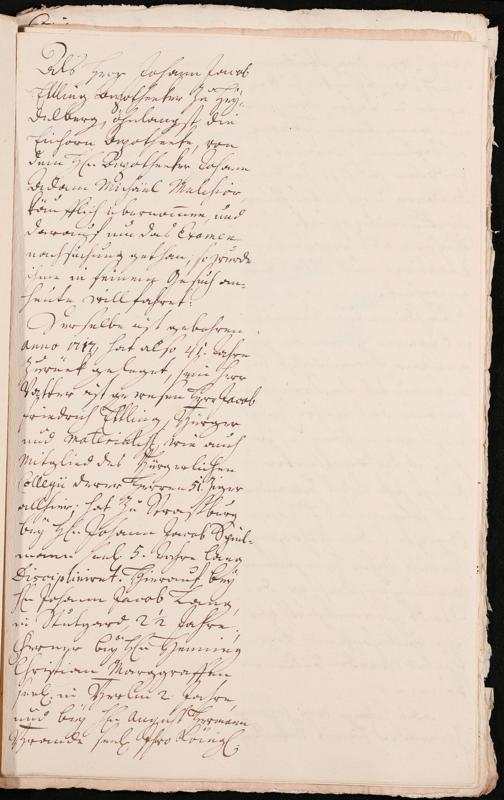 Als Herr Johann Jacob
Ettling Apotheker zu Hey-
delberg, ohnlängst, die
Einhorn Apotheke, von
dem H.n Apotheker Johann
Adam Michäel Melchior,
käufflich übernommen, und
darauf um das Examen
nachsuchung gethan, so wurde
ihme in seinem Gesuch an-
heute willfahret:
Derselbe ist gebohren
anno 1717, hat also 41. Jahre
Zurück geleget, sein Herr
Vatter ist gewesen Herr Jacob
Friedrich Ettling, Bürger
und Materialist, wie auch
Mitglied des Bürgerlichen
Collegii derer Herren 51.iger
allhier; hat zu Strassburg
bey H.n Johann Jacob
seel. 5. Jahre lang
Disciplinirt. Hierauf bey
H.n Johann Jacob
in Stutgard 2½ Jahre,
ferner bey H.n Henning
Christian Marggraffen
seel. in Berlin 2. Jahre,
und bey H.n August Hermann
Brande seel. Ihro Königl.